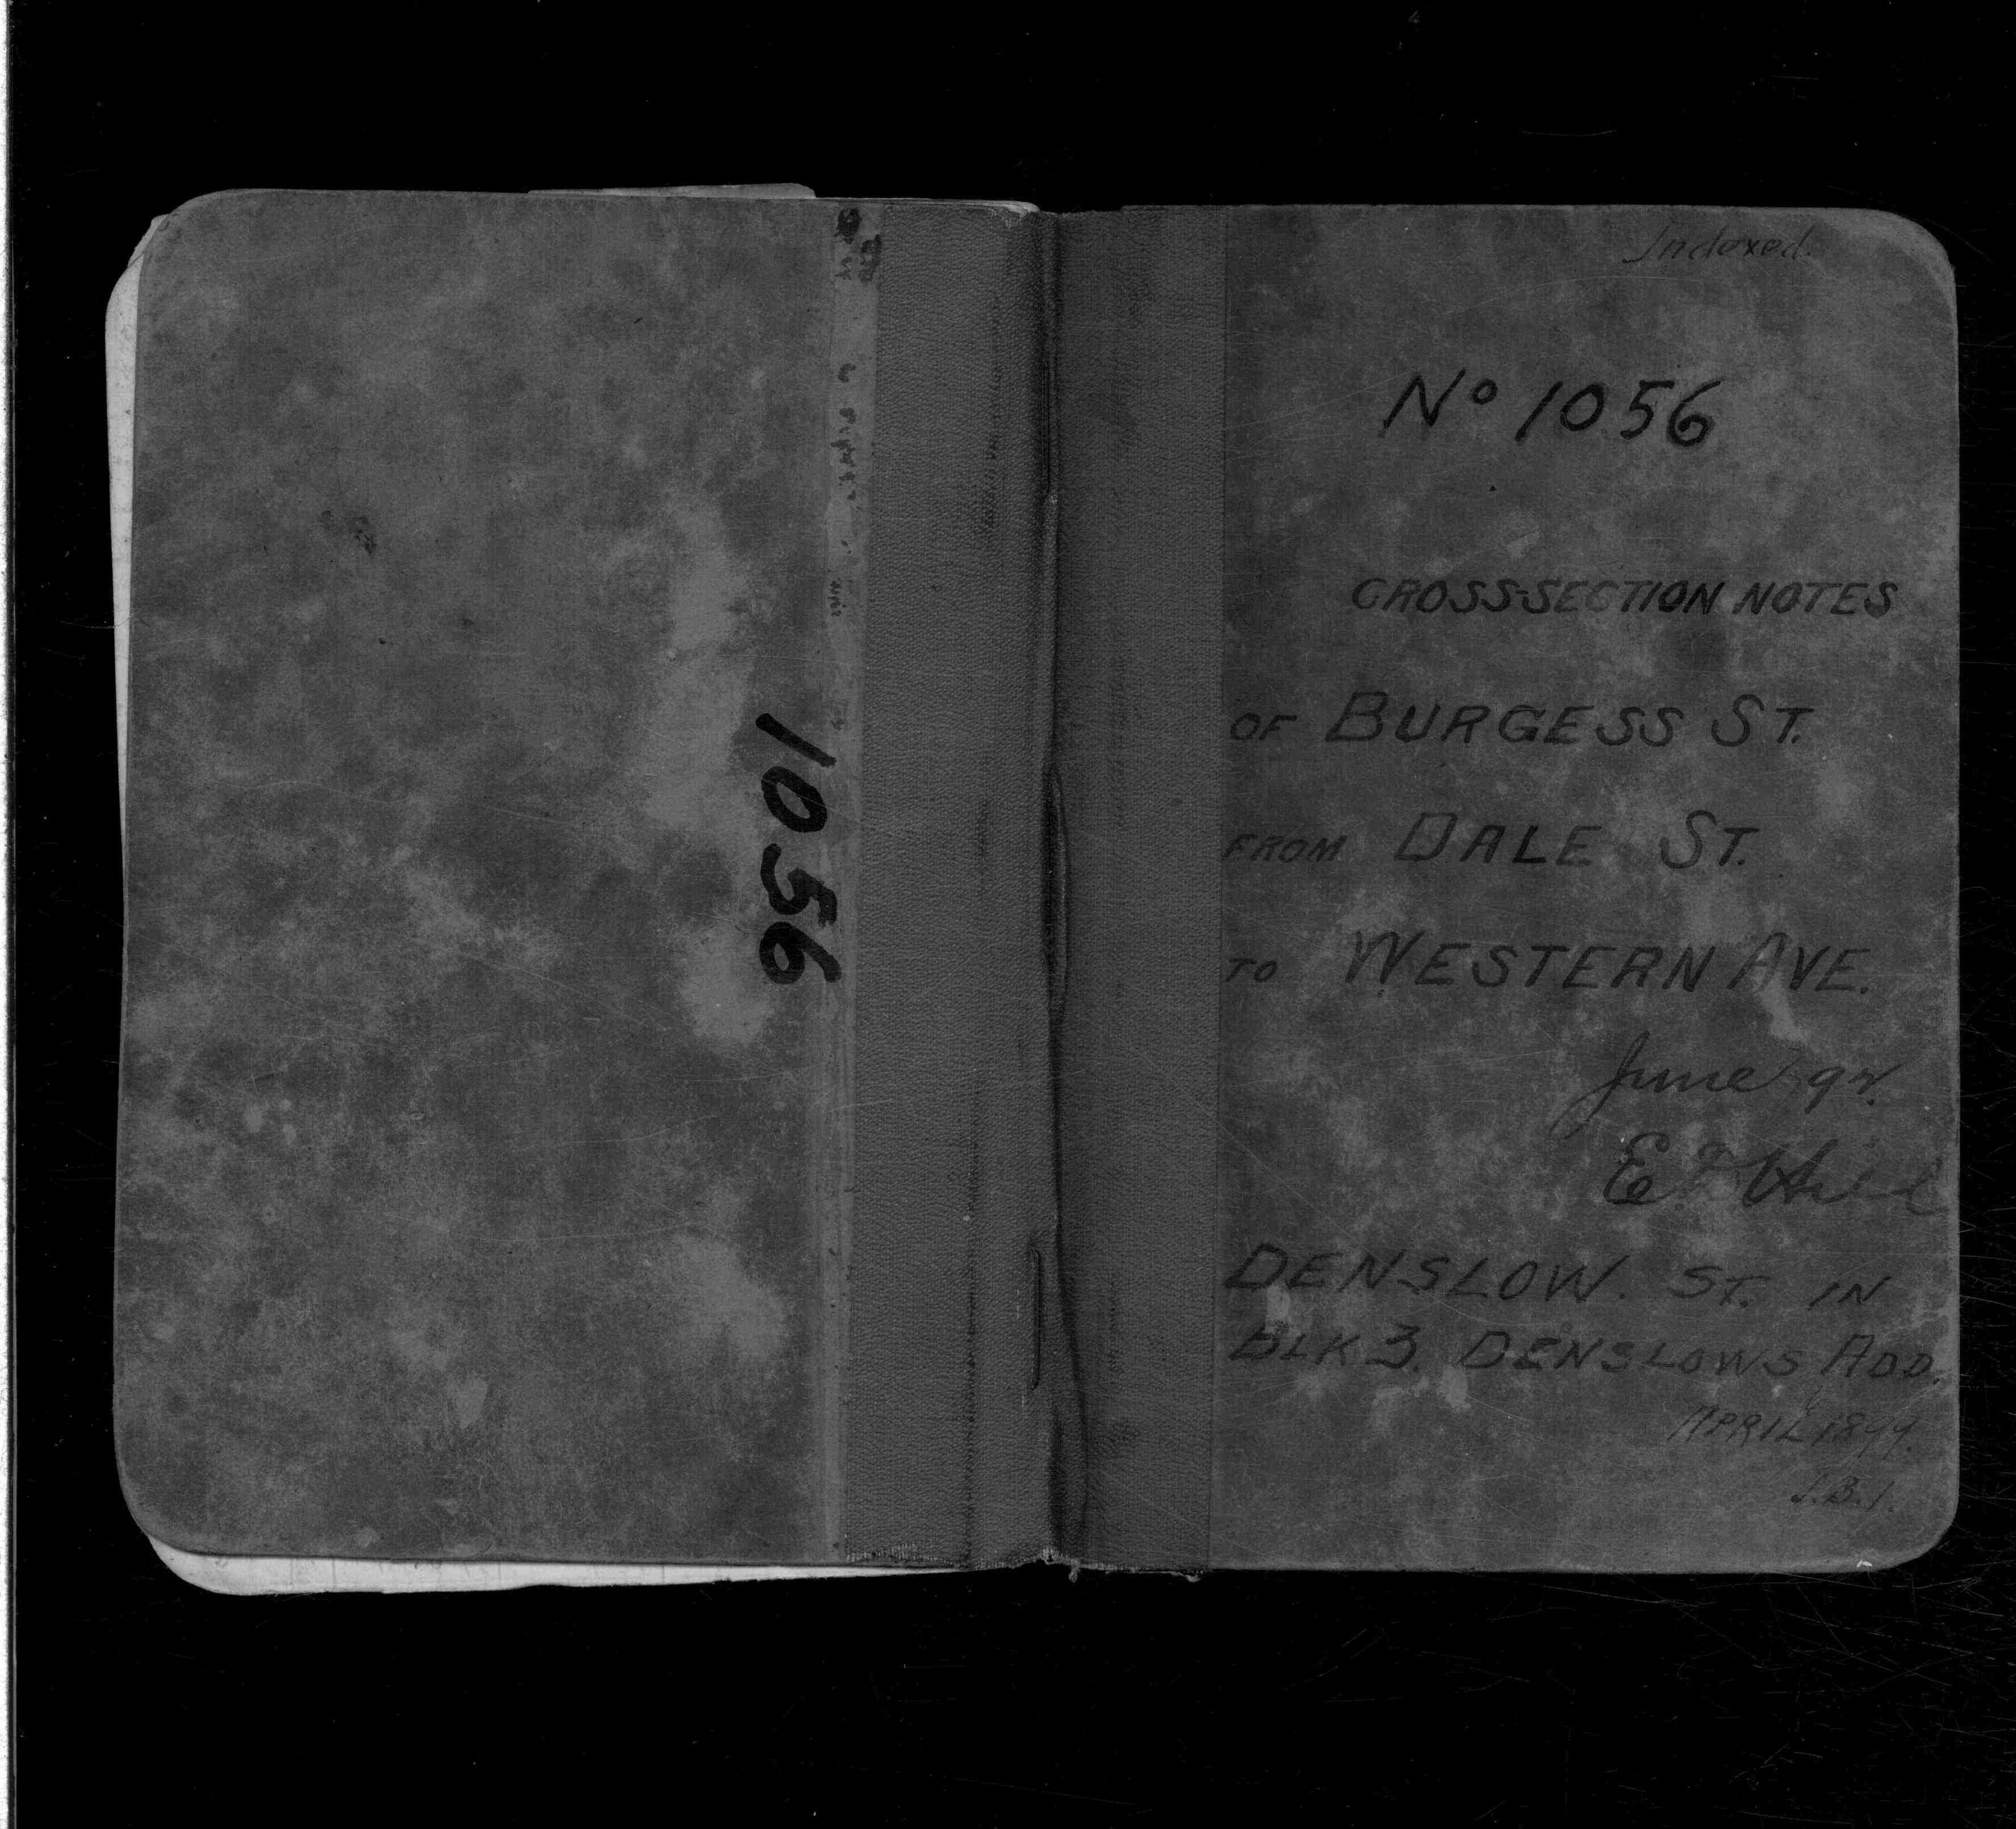 1056
Indexed.
Nº 1056
CROSS-SECTION NOTES
OF BURGESS ST.
FROM DALE ST.
TO WESTERN AVE.
June 92.
E. Hill
DENSLOW. ST. IN
BLK 3. DENSLOWS ADD.
APRIL 1899.